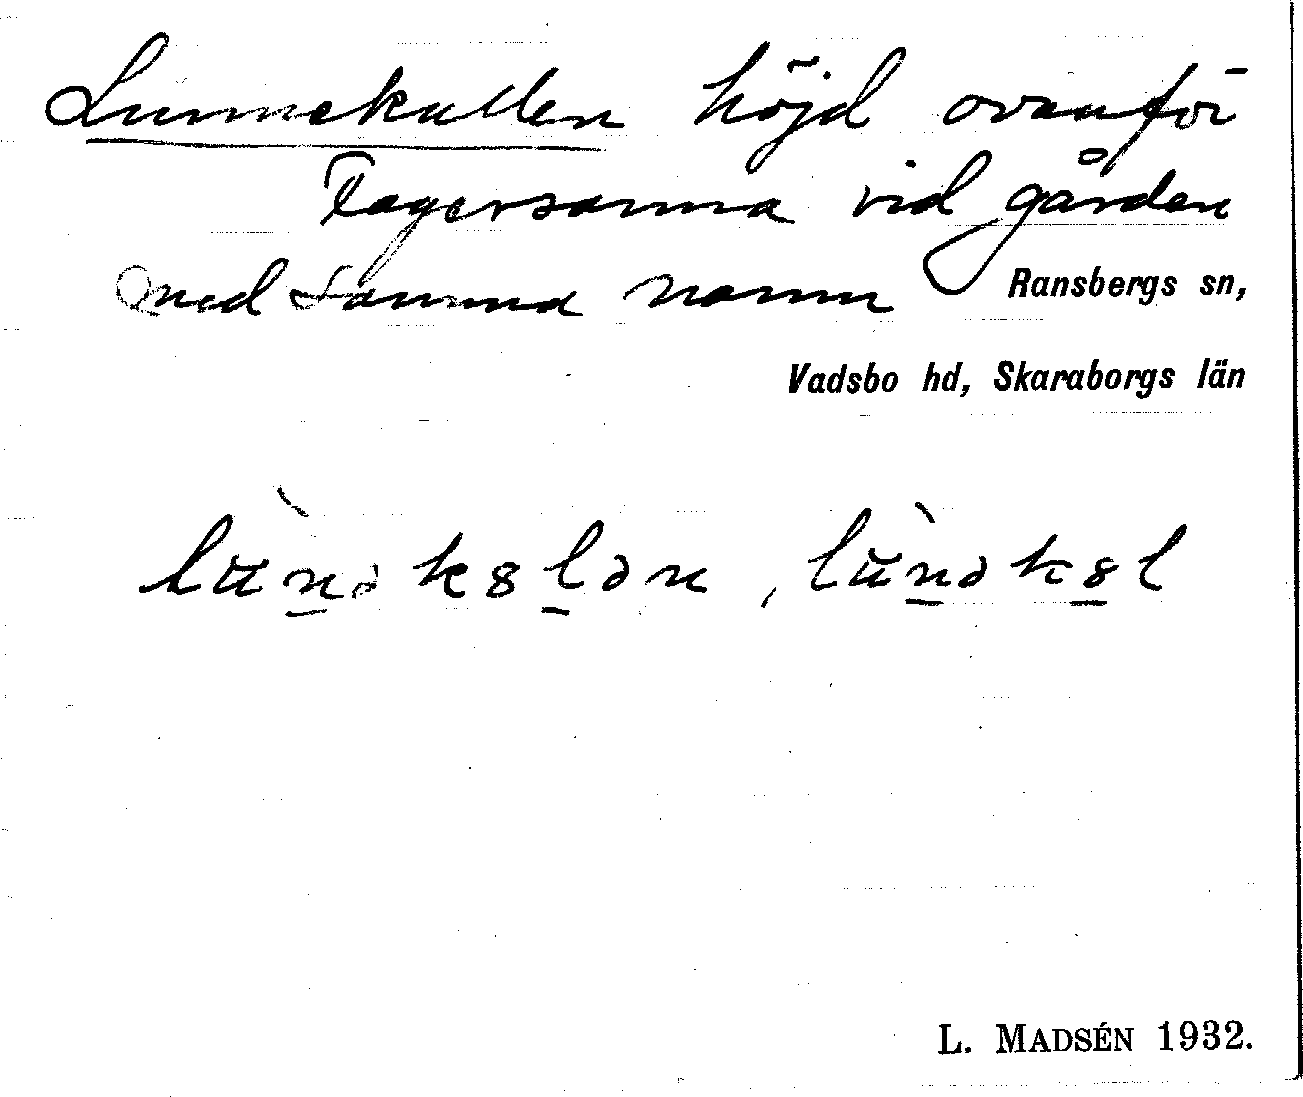 Lunnekullen höjd ovanför
Fagersanna vid gården
med samma namn Ransbergs sn,
Vadsbo hd, Skaraborgs län
lùn̲əks̲lən, lùn̲əks̲l
L. MADSÉN 1932.